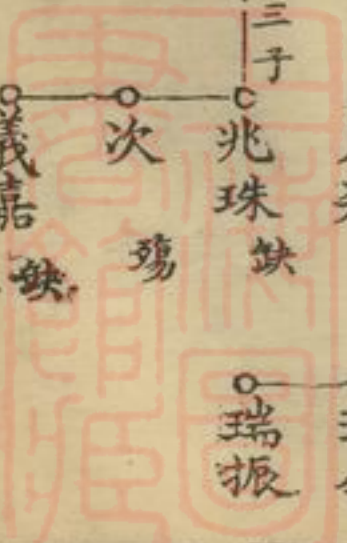 三子
兆珠 缺
次 殤
義嘉 缺
瑞振